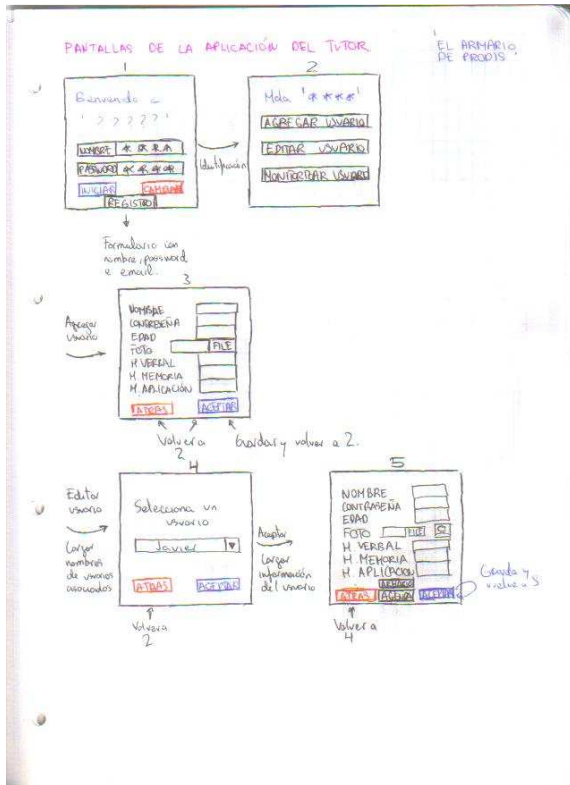 PANTALLAS DE LA APLICACIÓN DEL TUTOR
'EL ARMARIO
DE PRODIS'
1
Bienvenido a
'? ? ? ? ?'
NOMBRE * * * *
PASSWORD * * * *
INICIAR
CAMBIAR
REGISTRO
Identificación
2
Hola '* * * *'
AGREGAR USUARIO
EDITAR USUARIO
MONITORIZAR USUARIO
Formulario con
nombre, password
e email.
3
Agregar
usuario
NOMBRE
CONTRASEÑA
EDAD
FOTO FILE
H. VERBAL
H. MEMORIA
H. APLICACIÓN
ATRAS
ACEPTAR
Volver a
2
Guardar y volver a 2.
4
Editar
usuario
Cargar
nombres
de usuarios
asociados
Selecciona un
usuario
Javier
ATRAS
ACEPTAR
Volver a
2
Aceptar
Cargar
información
del usuario
5
NOMBRE
CONTRASEÑA
EDAD
FOTO FILE
H. VERBAL
H. MEMORIA
H. APLICACION
ARMARIO
ATRAS
AGENDA
ACEPTAR
Guarda y
vuelve a 5
Volver a
4